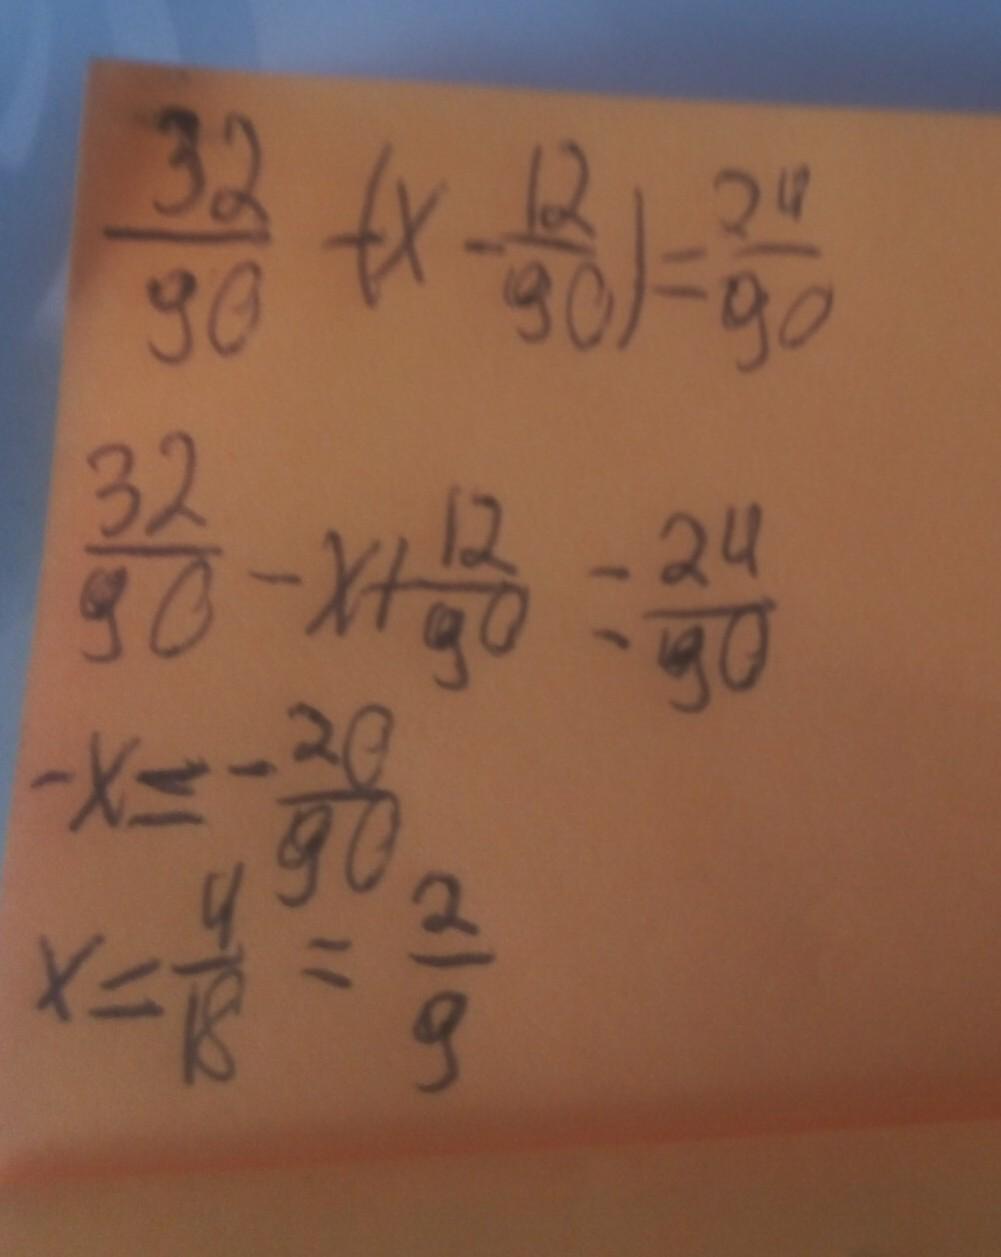 32/90 -(x - 12/90) = 24/90
32/90 - x + 12/90 = 24/90
-x = - 20/90
x = 4/18 = 2/9